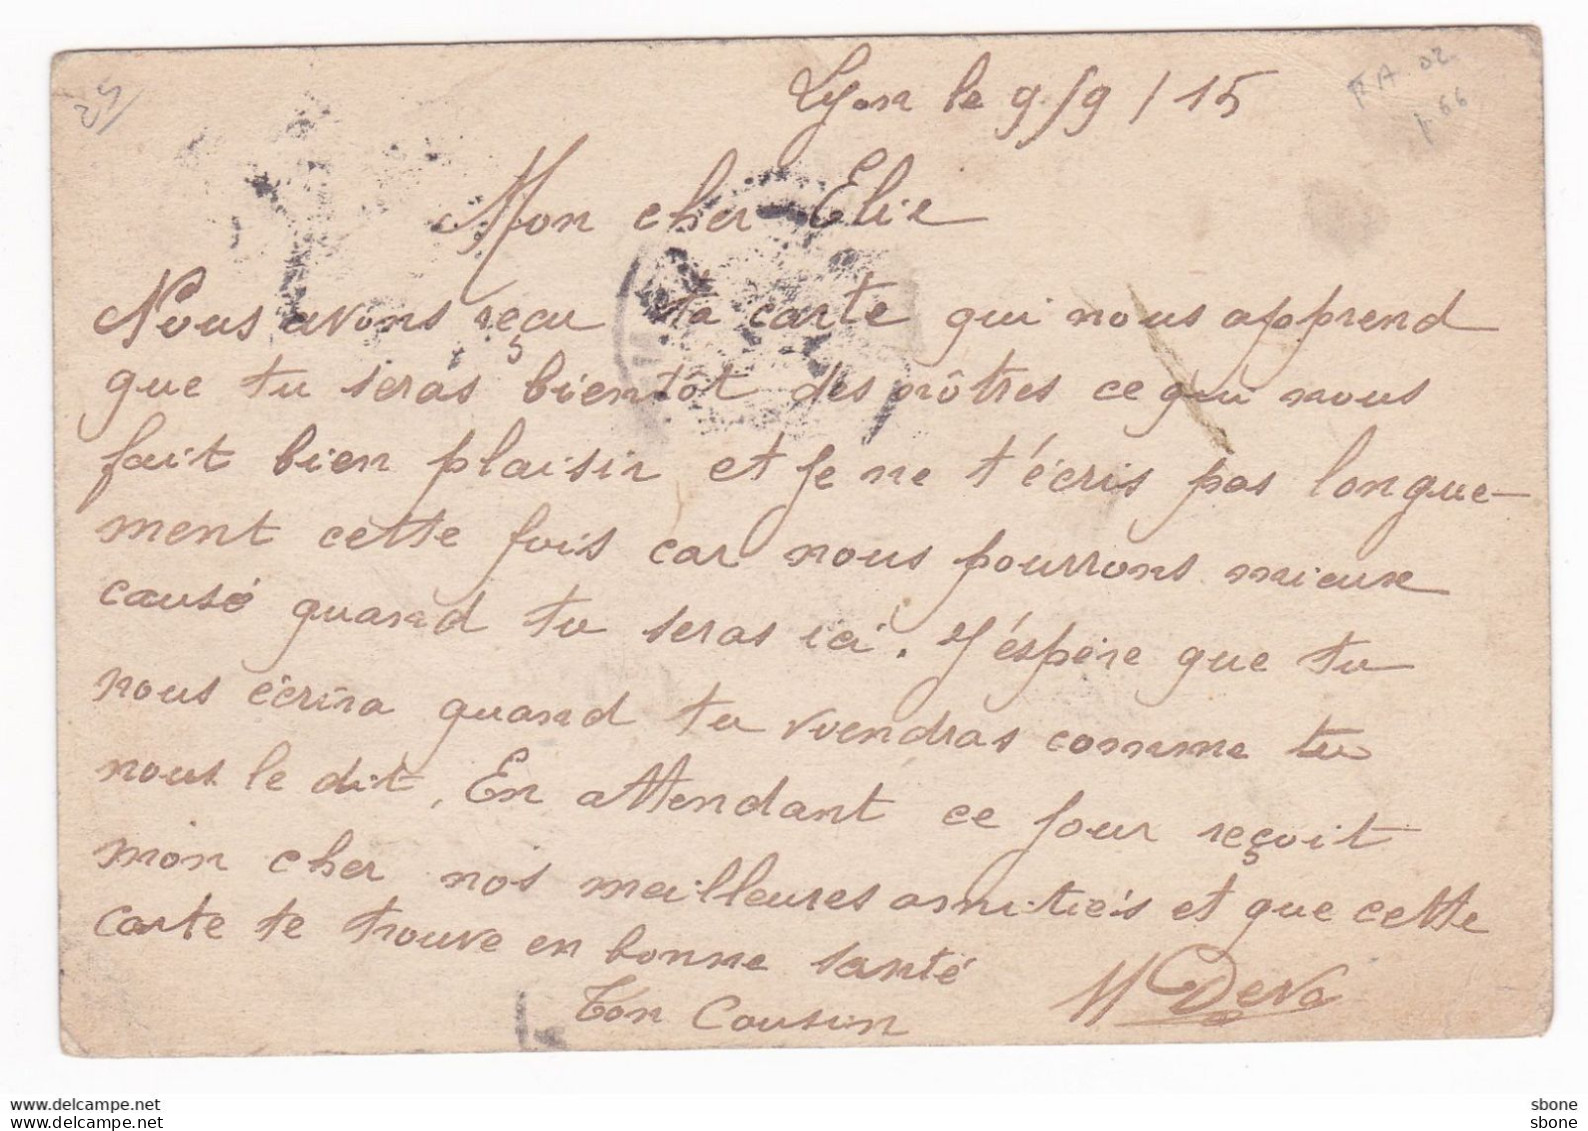 25
Lyon le 9/9/15
RA 02
1.66
Mon cher Elie
Nous avons reçu ta carte qui nous apprend
que tu seras bientôt des nôtres ce qui nous
fait bien plaisir et je ne t'écris pas longue-
ment cette fois car nous pourrons mieux
causé quand tu seras ici. J'éspère que tu
nous écrira quand tu viendras comme tu
nous le dit. En attendant ce jour reçoit
mon cher nos meilleures amitiés et que cette
carte te trouve en bonne santé
Ton Cousin
www.delcampe.net
www.delcampe.net
sbone
sbone